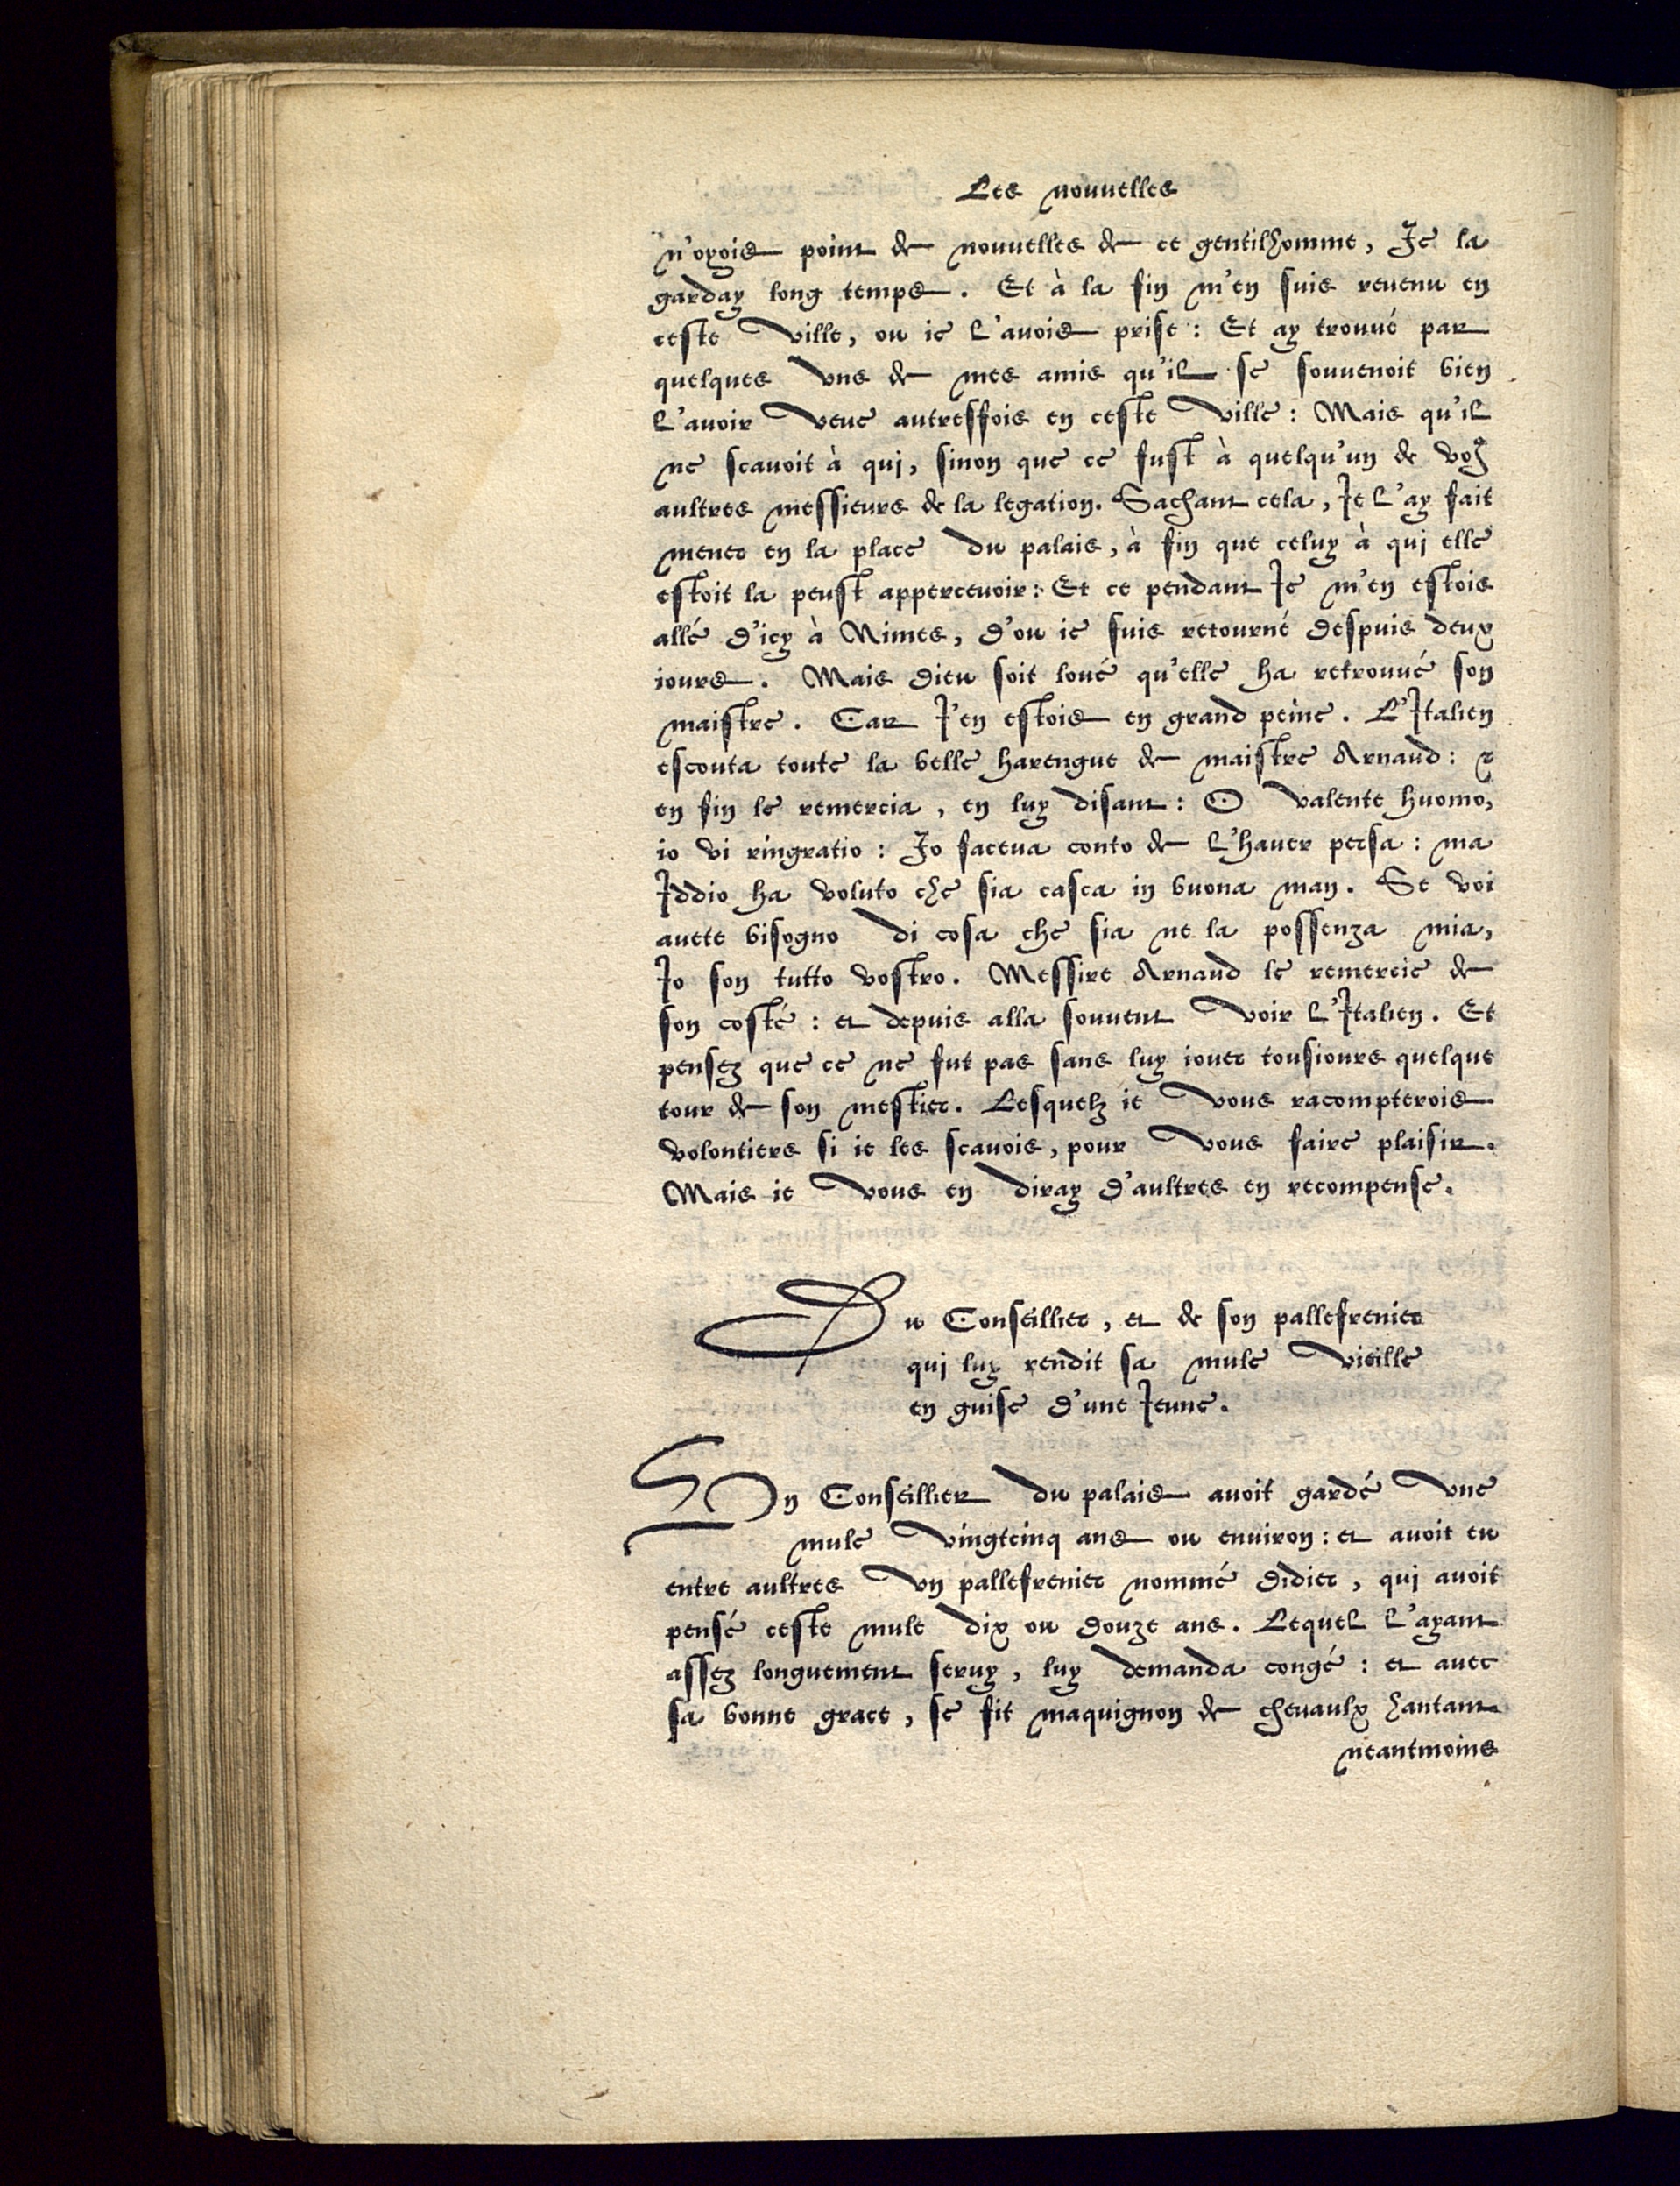 Les nouuelles
n'oyois point de nouuelles de ce gentilhomme, Ie la
garday long temps. Et à la fin m'en suis reuenu en
ceste ville, ou ie l'auois prise: Et ay trouué par
quelques vns de mes amis qu'il se souuenoit bien
l'auoir veue autresfois en ceste ville: Mais qu'il
ne scauoit à qui, sinon que ce fust à quelqu'un de voz
aultres messieurs de la legation. Sachant cela, Ie l'ay fait
mener en la place du palais, à fin que celuy à qui elle
estoit la peust apperceuoir: Et ce pendant Ie m'en estois
allé d'icy à Nimes, d'ou ie suis retourné despuis deux
iours. Mais dieu soit loué qu'elle ha retrouué son
maistre. Car I'en estois en grand peine. L'Italien
escouta toute la belle harengue de maistre Arnaud: &
en fin le remercia, en luy disant: O valente huomo,
io vi ringratio: Io faceua conto de l'hauer persa: ma
Iddio ha voluto che sia casca in buona man. Se voi
auete bisogno di cosa che sia ne la possenza mia,
Io son tutto vostro. Messire Arnaud le remercie de
son costé: et depuis alla souuent voir l'Italien. Et
pensez que ce ne fut pas sans luy iouer tousiours quelque
tour de son mestier. Lesquelz ie vous racompterois
volontiers si ie les scauois, pour vous faire plaisir.
Mais ie vous en diray d'aultres en recompense.
Du Conseillier, et de son pallefrenier
qui luy rendit sa mule vieille
en guise d'une Ieune.
Vn Conseillier du palais auoit gardé vne
mule vingtcinq ans ou enuiron: et auoit eu
entre aultres vn pallefrenier nommé didier, qui auoit
pensé ceste mule dix ou douze ans. Lequel l'ayant
assez longuement seruy, luy demanda congé: et auec
sa bonne grace, se fit maquignon de cheuaulx hantant
neantmoins